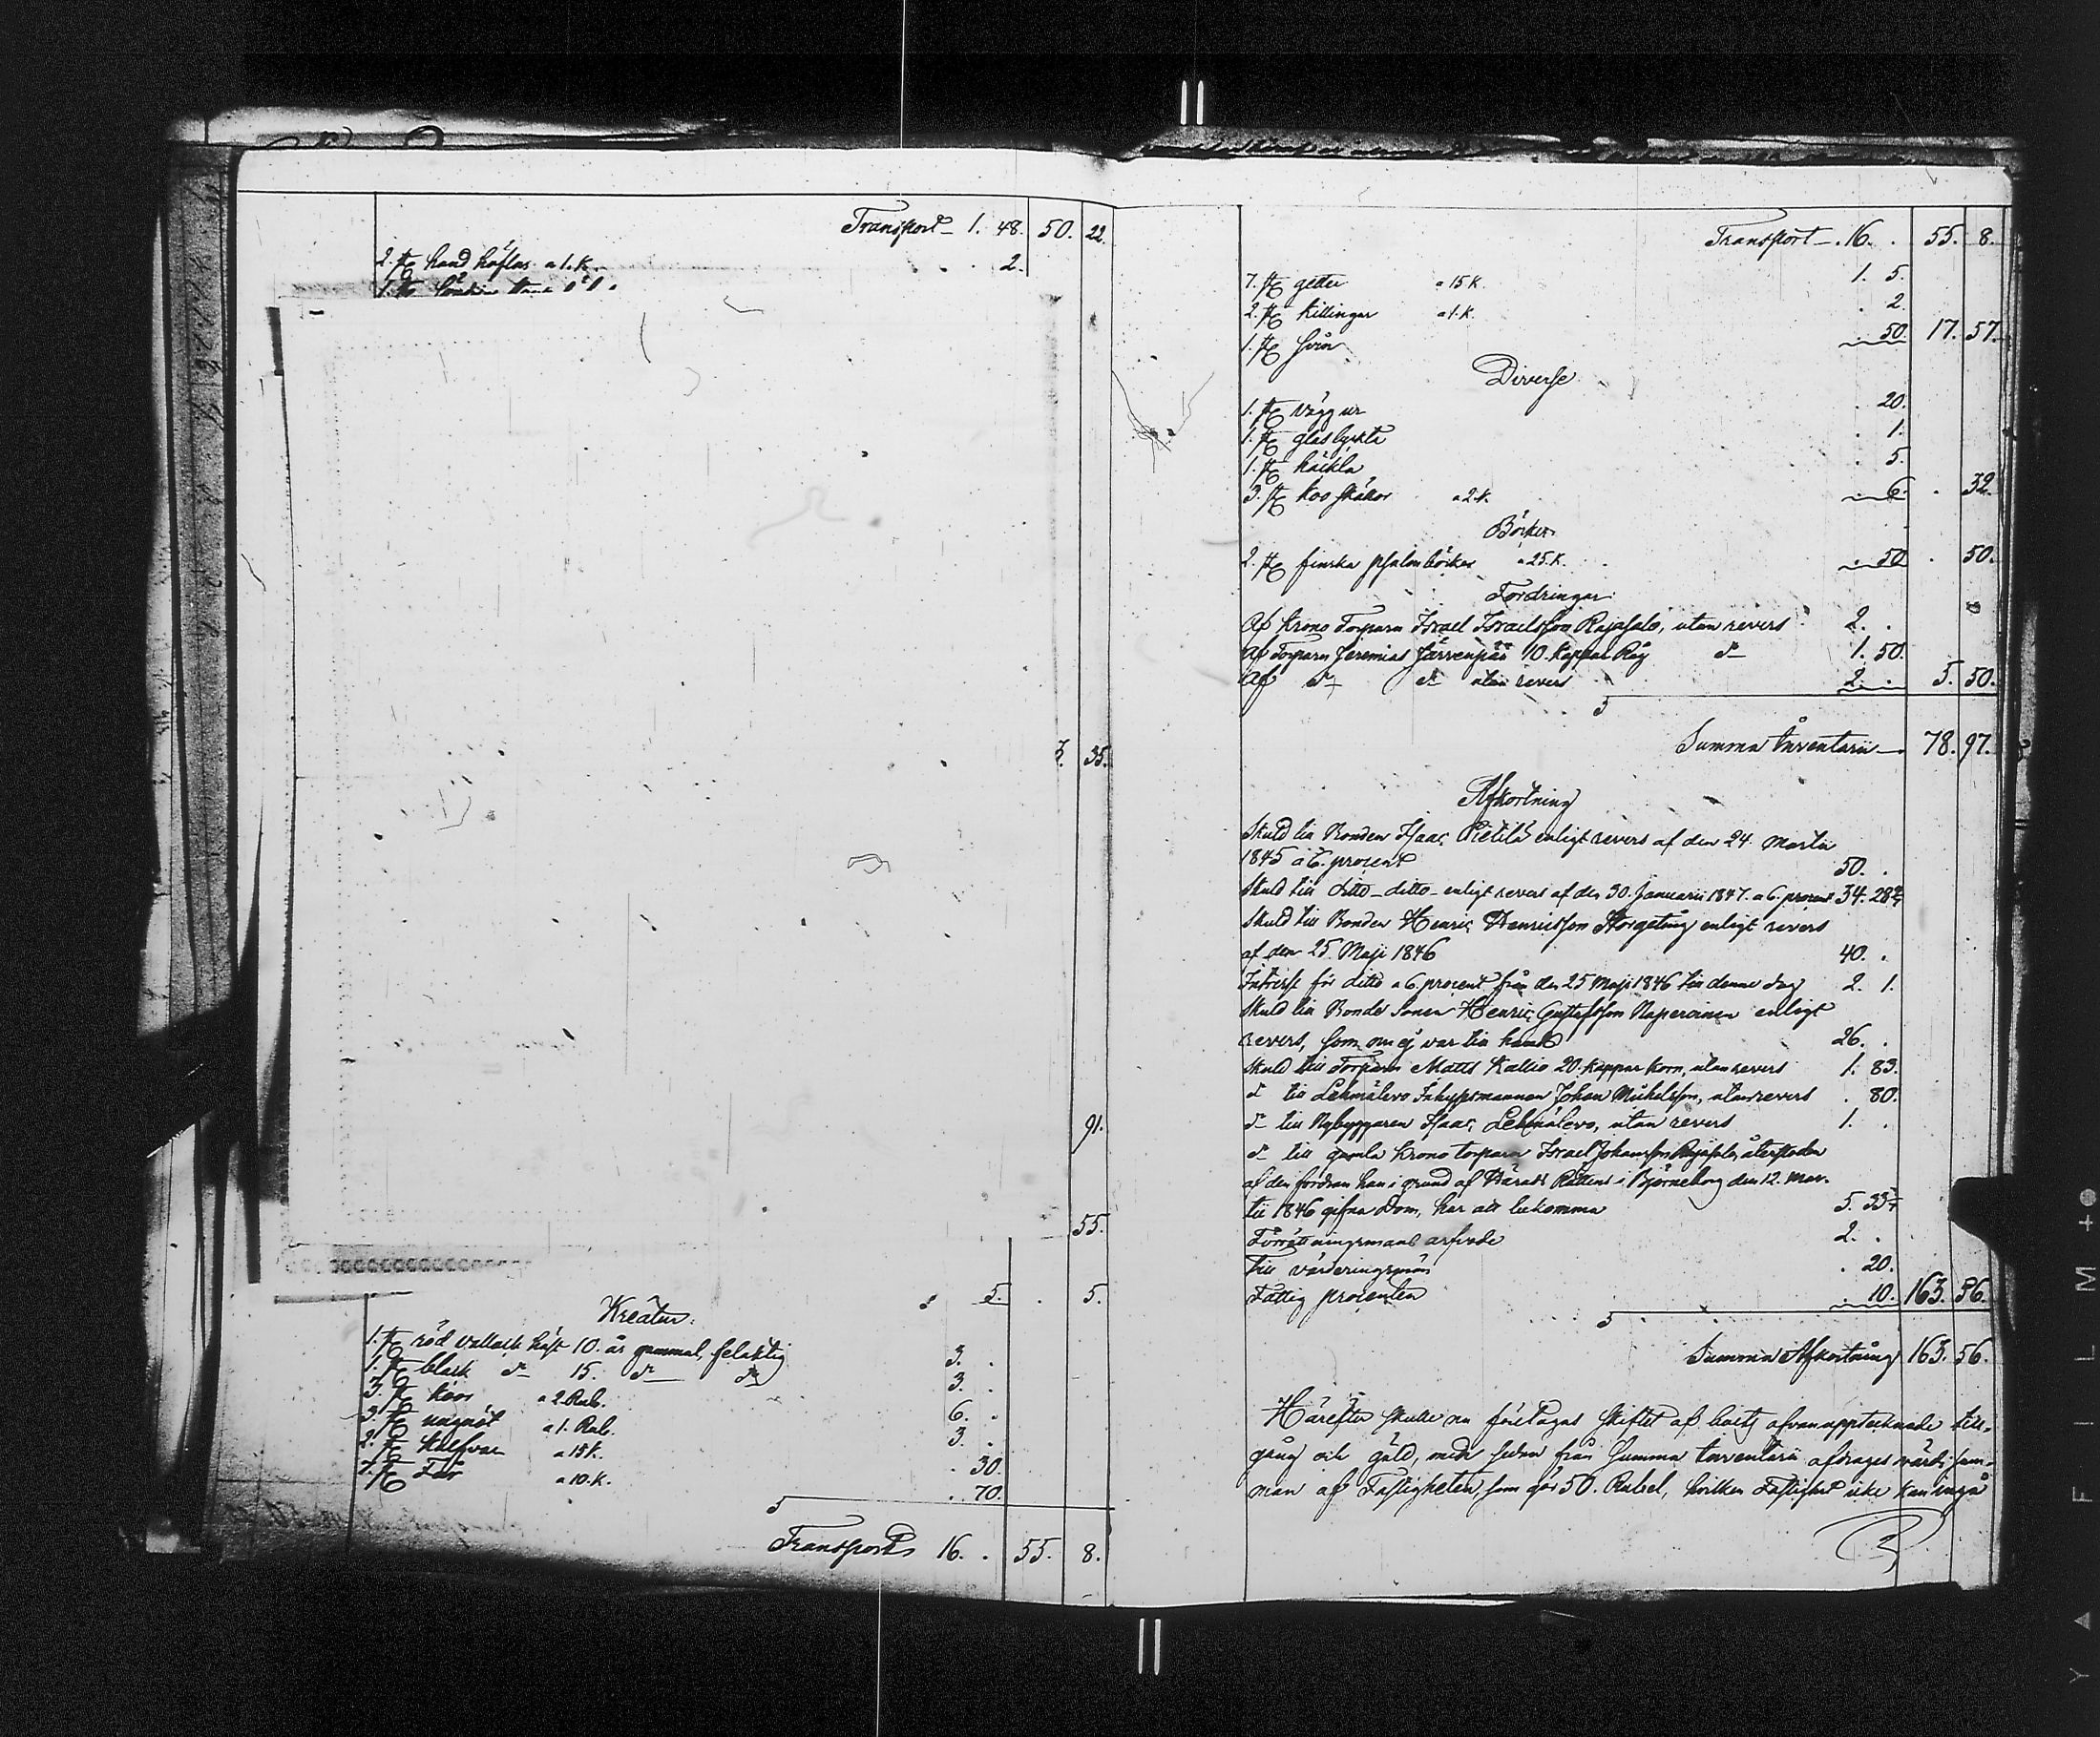 Transport 1. 48. 50. 22.
2. st hand höflar a 1. K. . 2.
3. 35.
91.
55.
5. . 5.
Kreatur.
1. st röd vallack häst 10. år gammal, felaktig 3. .
1. st black d:o 15. d:o d:o 3. .
3. st koor a 2 Rub. 6. .
3. st ungnöt a 1. Rub. 3. .
2. st kalfvar a 15 K. . 30.
7. st Får a 10. K. . 70.
Transport 16. . 55. 8.
Transport 16. . 55. 8.
7. st getter a 15 K. 1. 5.
2. st killingar a 1. K. . 2.
1. st svin . 50. 17. 57.
Diverse
1. st vägg ur . 20.
1. st glas lyckta . 1.
1. st häckla . 5.
3. st koo skällor a 2 K. . 6. . 32.
Böcker
2. st finska psalmböcker a 25 K. . 50 . 50.
Fordringar
Af Krono Torparn Israel Israelsson Rajasalo, utan revers 2. .
Af Torparn Jeremias Järvenpää 10. kappar Råg d:o 1. 50.
Af d:o d:o utan revers 2. . 5. 50.
Summa Inventarii 78. 97.
Afkortning
Skuld till Bonden Isaac Pietilä enligt revers af den 24 Martii
1845 a 6. procent 50. .
Skuld till ditto ditto enligt revers af den 30. Januarii 1847. a 6. procent 34. 28 4/7
Skuld till Bonden Henric Henricsson Storgeting enligt revers
af den 25. Maji 1846 40. .
Intresse för ditto a 6. procent från den 25 Maji 1846 till denne dag 2. 1.
Skuld till Bonde Sonen Henric Gustafsson enligt
revers, som nu ej var till hands 26. .
Skuld till Torparn Matts Kallio 20. kappar korn, utan revers 1. 83.
d:o till Lehmälevo Inhysesmannen Johan Michelsson, utan revers . 80.
d:o till Nybyggaren Isaac Lehmälevo, utan revers 1. .
d:o till gamla Krono torparn Israel Johansson Rajasalo, återstoden
af den fordran han i grund af Härads Rättens i Björneborg den 12. Mar-
tii 1846 gifna Dom, har att bekomma 5. 33
Förrättningsmans arfvode 2. .
Till värderingsmän . 20.
Fattig procenten . 10. 163. 56.
Summa Afkortning 163. 56.
Härefter skulle nu företagas skiftet af boets ofvanupptecknade till-
gång och gäld, medst sedan från Summa Inventarii afdrages värdi sum-
man af Fastigheten, som gör 50. Rubel, hvilken Fastighet icke kan ingå